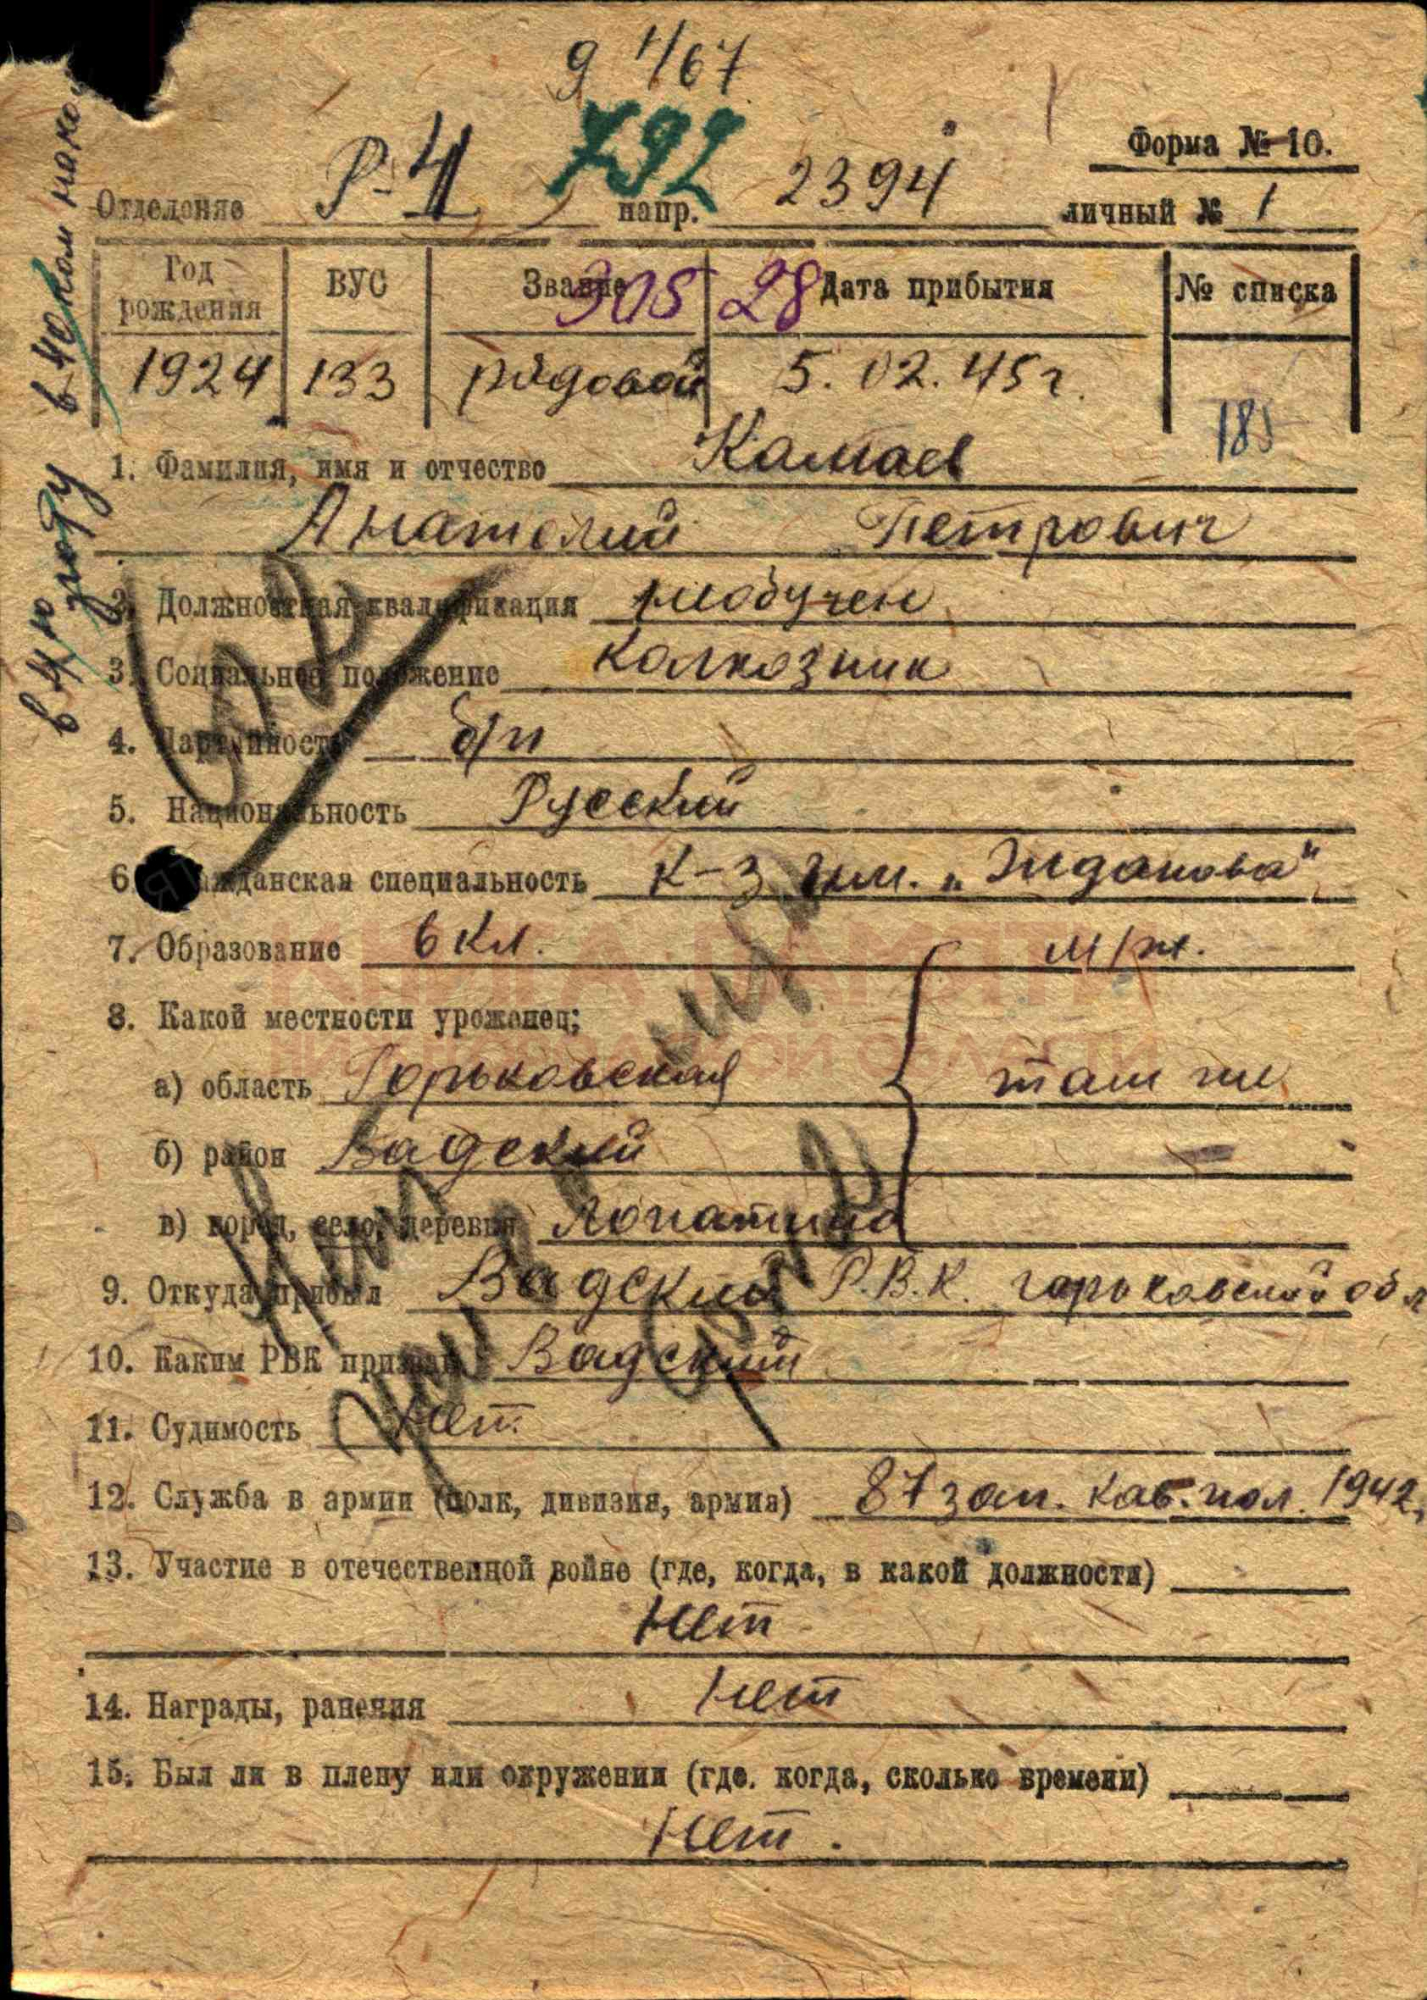 9 1/67
792
Форма № 10.
Отделение Р-4 напр. 2394 личный № 1
Год рождения ВУС Звание Дата прибытия № списка
305 28
1924 133 рядовой 5.02.45г.
185
1. Фамилия, имя и отчество Камаев
Анатолий Петрович
2. Должностная квалификация необучен
3. Социальное положение Колхозник
4. Партийность б/п
5. Национальность Русский
6. Гражданская специальность К-з им. „Жданова"
7. Образование 6 кл. м/ж.
8. Какой местности уроженец;
а) область Горьковская там же
б) район Вадский —
в) город, село, деревня Лопатино
9. Откуда прибыл Вадский Р.В.К. горьковской обл
10. Каким РВК призван Вадский
11. Судимость Нет.
12. Служба в армии (полк, дивизия, армия) 87 зап. кав. пол. 1942
13. Участие в отечественной войне (где, когда, в какой должности)
Нет
14. Награды, ранения Нет
15. Был ли в плену или окружении (где, когда, сколько времени)
Нет.
в 4ую роту в
КНИГА ПАМЯТИ
НИЖЕГОРОДСКОЙ ОБЛАСТИ